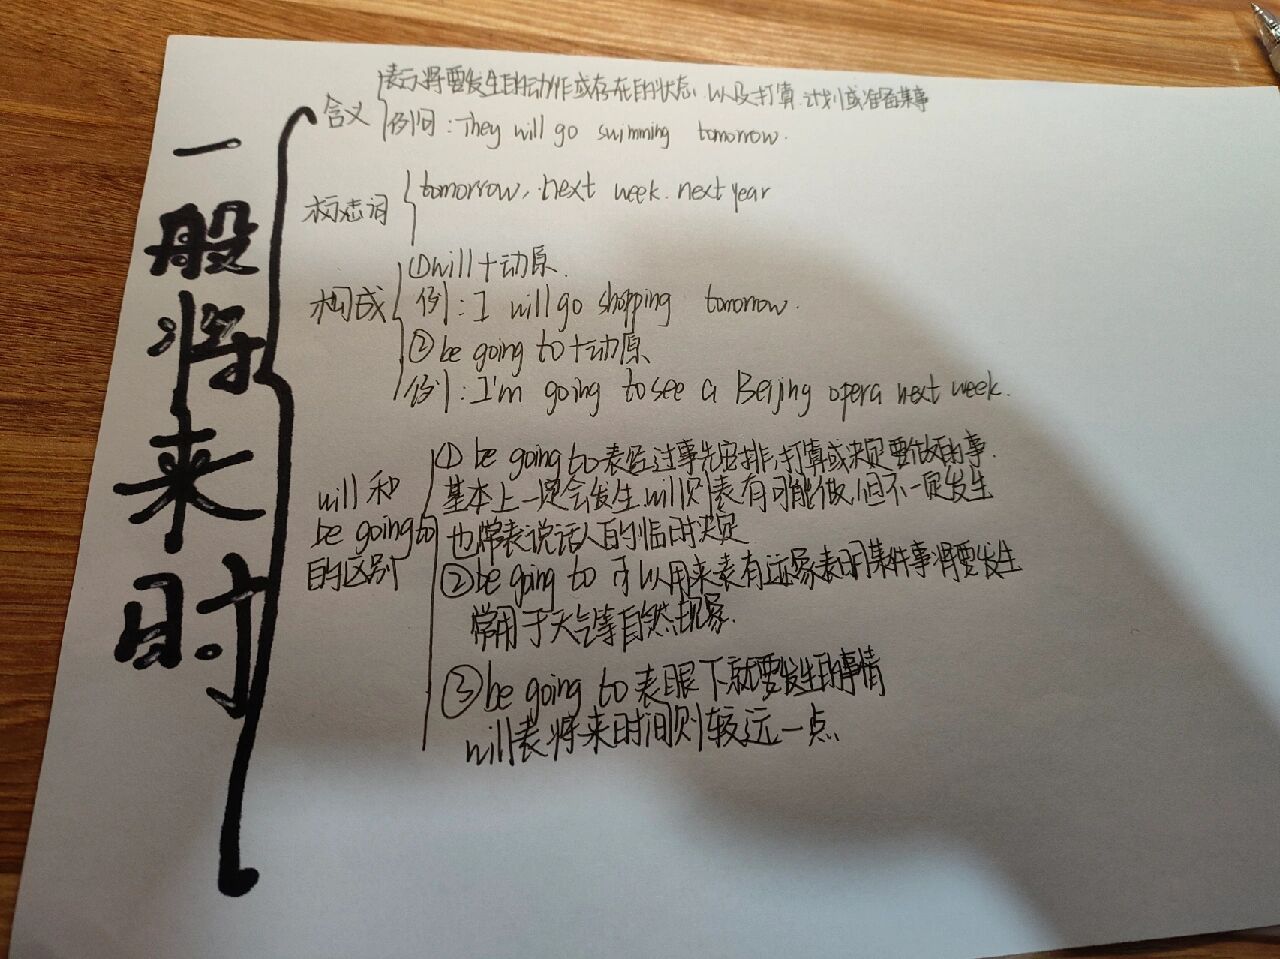 一般将来时
含义
表示将要发生的动作或存在的状态、以及打算、计划或准备某事
例问：They will go swimming tomorrow.
标志词
tomorrow, next week. next year
构成
①will+动原.
例：I will go shopping tomorrow.
②be going to+动原
例：I'm going to see a Beijing opera next week.
will和
be going to
的区别
① be going to表经过事先安排、打算或决定要做的事.
基本上一定会发生.will则表有可能做,但不一定发生
也常表说话人的临时决定
②be going to 可以用来表有迹象表明某件事将要发生
常用于天气等自然现象.
③be going to表眼下就要发生的事情
will表将来时间则较远一点